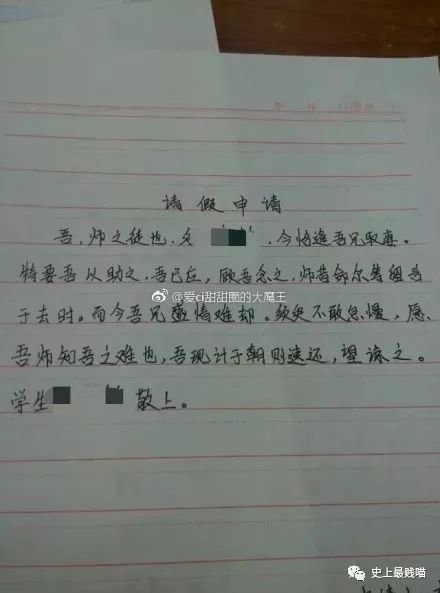 请假申请
吾,师之徒也,名,今恰逢吾兄取妻。
特要吾以助之,吾已应,顾吾念之,师昔命尔等组言
于去时。而今吾兄盛情难却。须臾不敢怠慢,愿
吾师知吾之难也,吾现计于朝则速还,望谅之。
学生 敬上。
@爱ci甜甜圈的大魔王
史上最贱喵